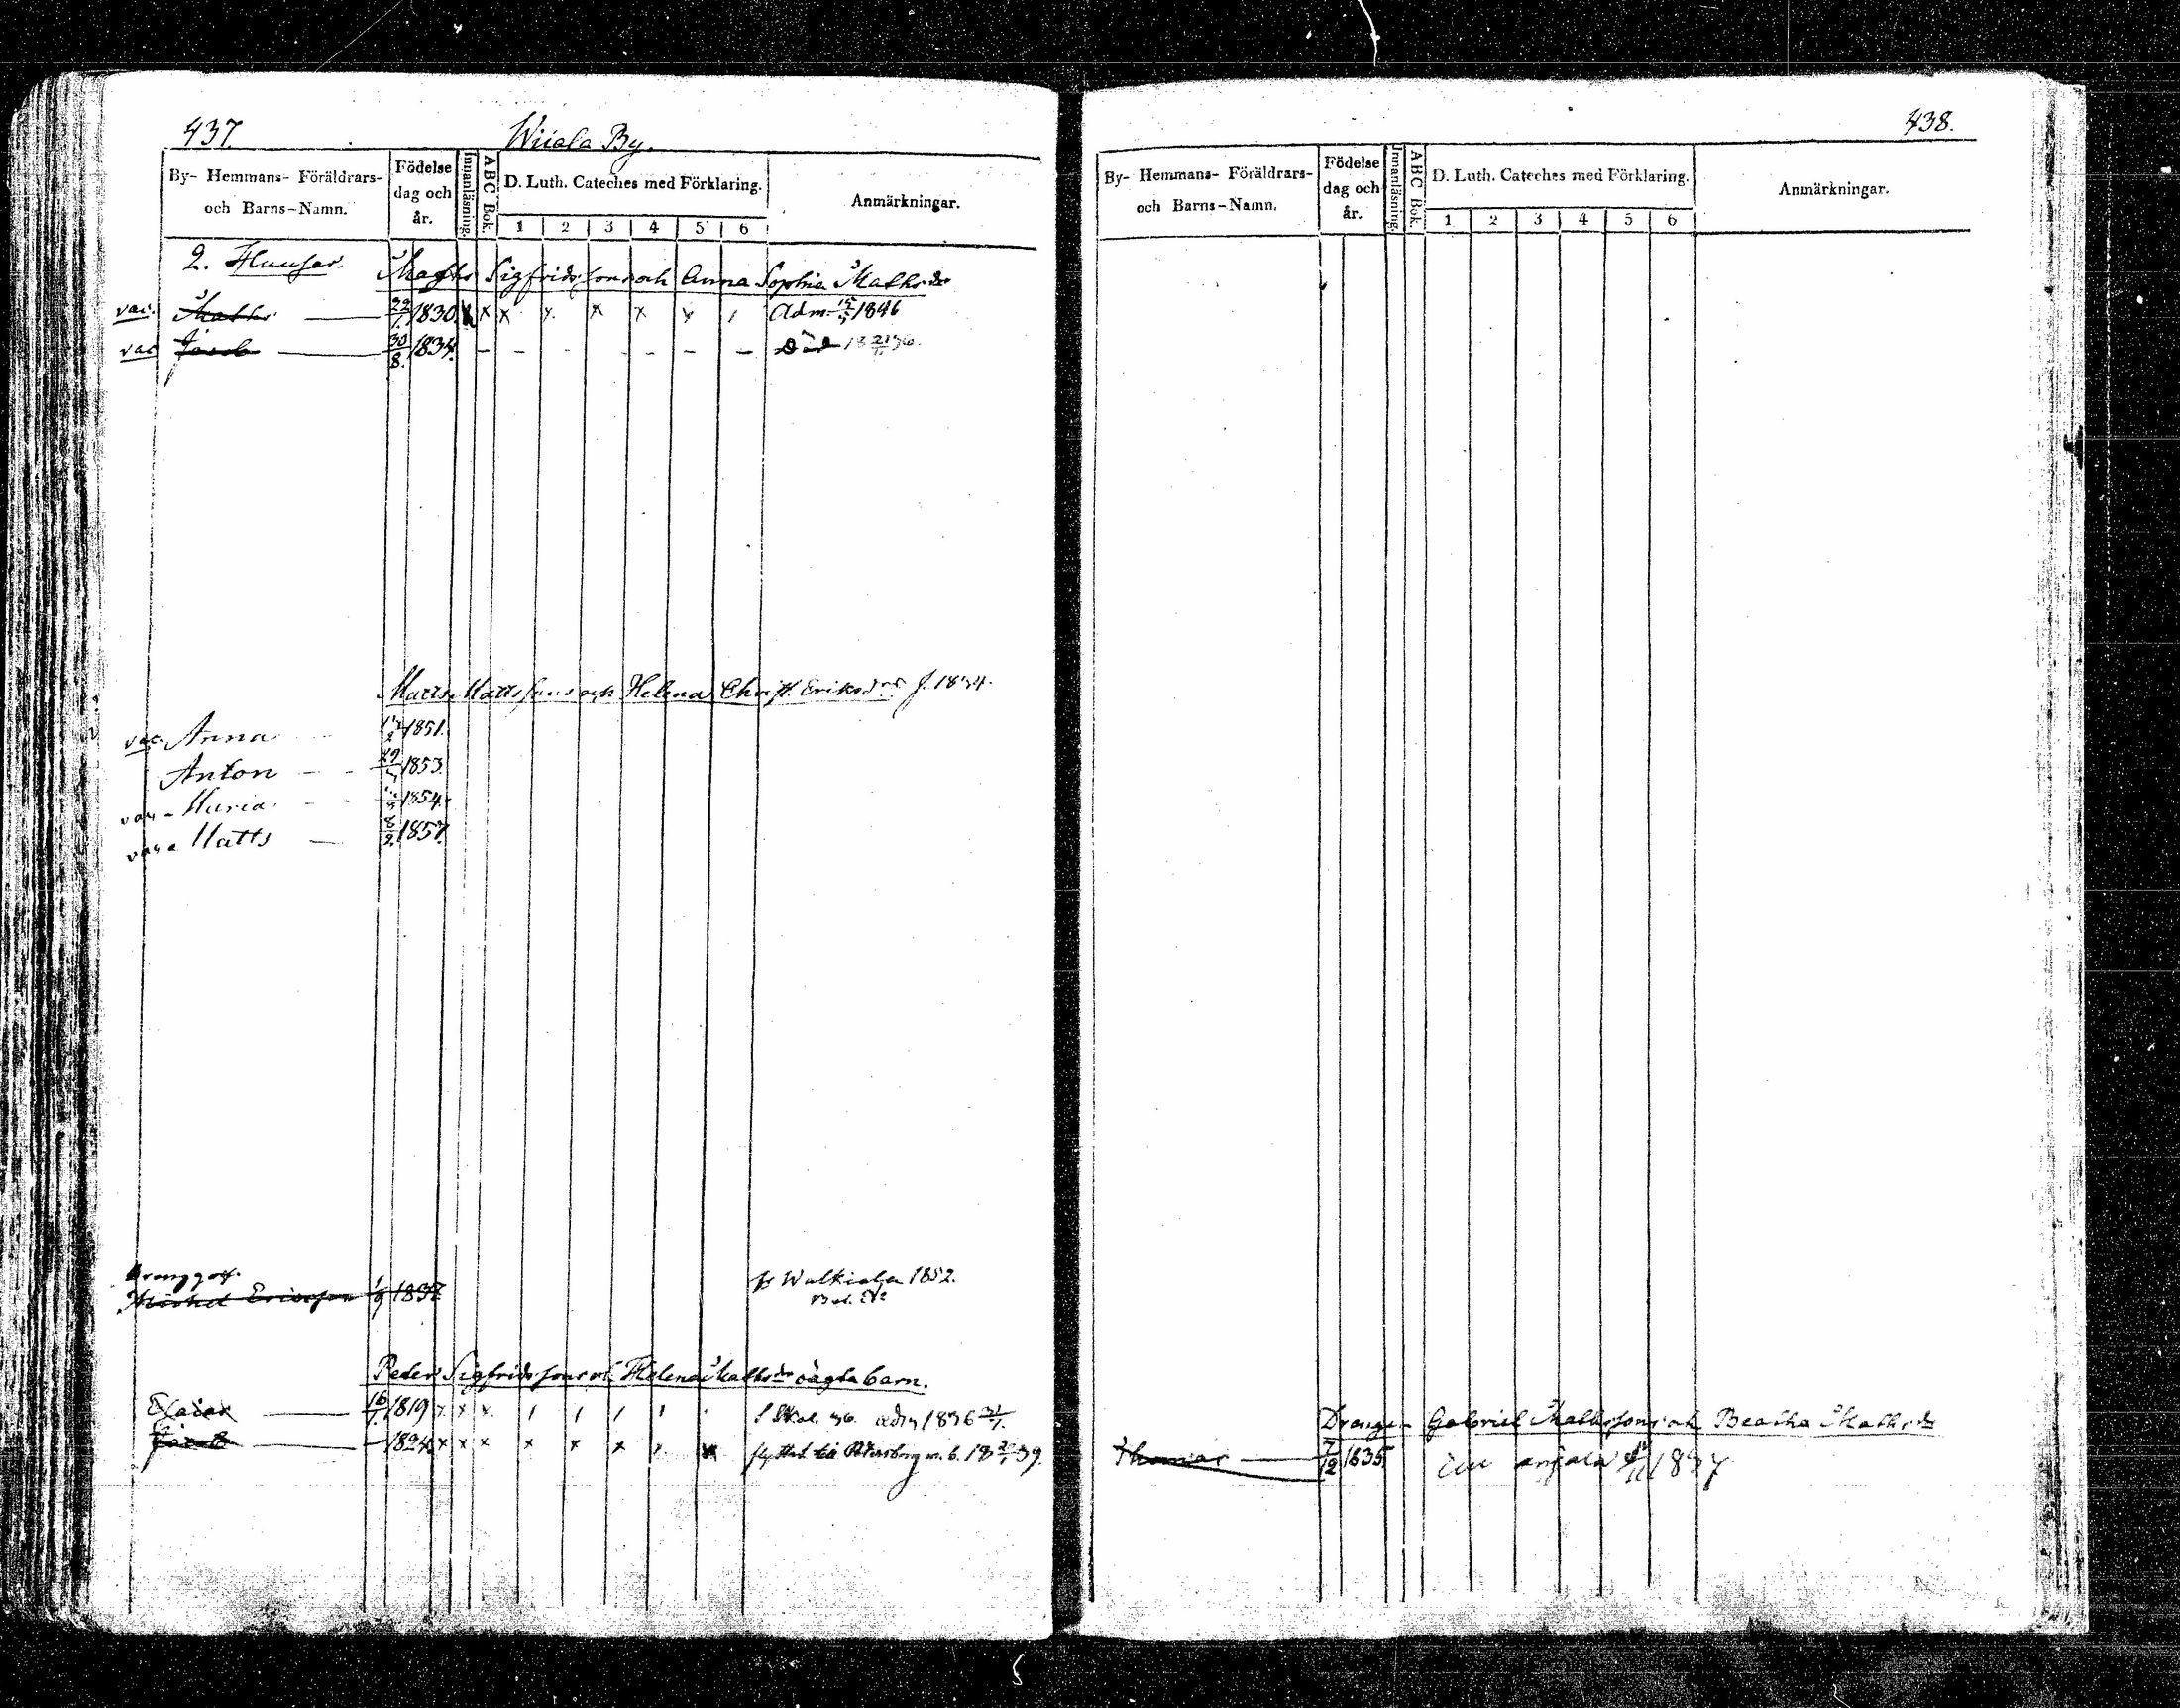 437.
Wiiala By.
By- Hemmans- Föräldrars- och Barns-Namn.
Födelse dag och år.
Innanläsning.
ABC Bok.
D. Luth. Cateches med Förklaring.
1 2 3 4 5 6
Anmärkningar.
2.
Matths Sigfridssons och Anna Sophia Mathsdr
vac. Maths 1830 x x x x x x Adm. 1846
vac Jacob 30/8. 1834. – – – – – – – Död
Matts Mattssons och Helena Christ. Eriksdrs f.
vac. Anna 1851.
Anton 1853.
Maria 1854.
Matts 8/2 1857.
Michel Ericsson 1/9
Walkiala 1852.
Peter Sigfridssons och Helena Mathsdr oägta barn.
16/1. 1819 x x x
Jacob – 1824 x x x x x x flyttat till Petersburg m. b.
438.
By- Hemmans- Föräldrars- och Barns-Namn.
Födelse dag och år.
Innanläsning.
ABC Bok.
D. Luth. Cateches med Förklaring.
1 2 3 4 5 6
Anmärkningar.
Drängen Gabriel Mathssons och Beatha Mathsdr
Thomas 7/12 1835